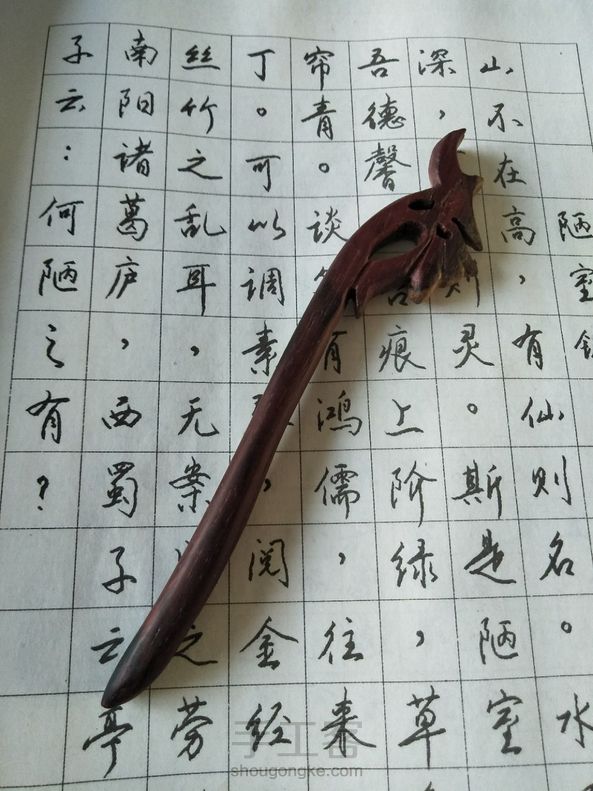 陋室
山不在高，有仙则名。水
深，灵。斯是陋室
吾德馨痕上阶绿，草
帘青。谈有鸿儒，往来
丁。可以调素，阅金经
丝竹之乱耳，无案之劳
南阳诸葛庐，西蜀子云亭
子云：何陋之有？
手工客
shougongke.com